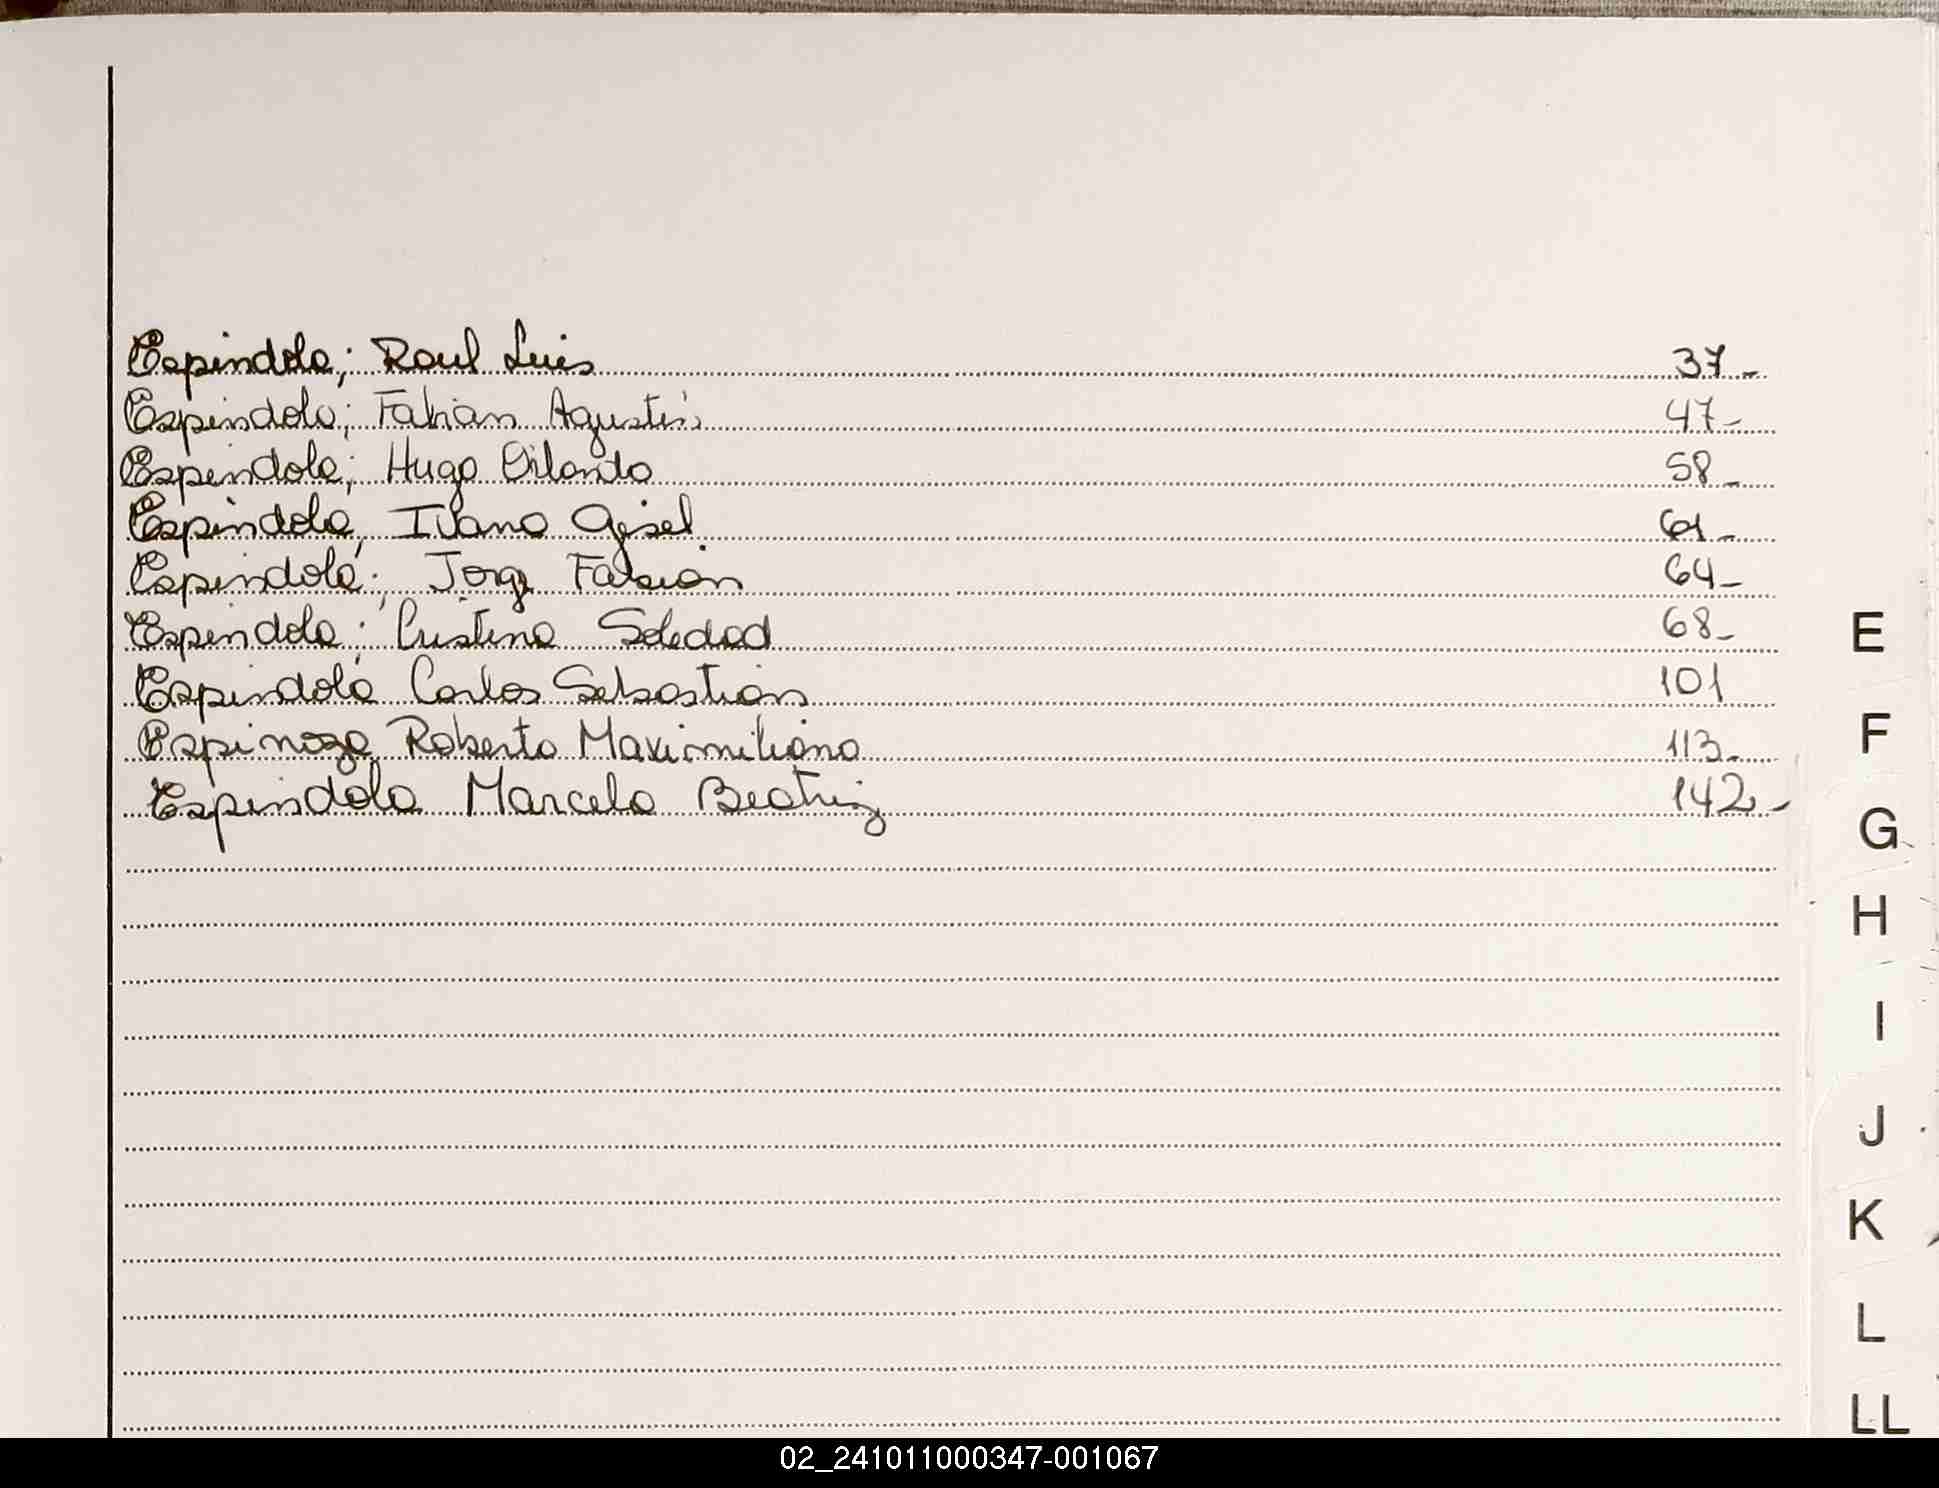 Espindola; Raul Luis 37_
Espindola; Fabian Agustin 47_
Espindola; Hugo Orlando 58_
Espindola, Ivana Gisel 61_
Espindola; Jorge Fabian 64_
Espindola; Cristina Soledad 68_
Espindola Carlos Sebastian 101
Espinoza Roberto Maximiliano 113_
Espindola Marcela Beatriz 142_
E
F
G
H
I
J
K
L
LL
02_241011000347-001067